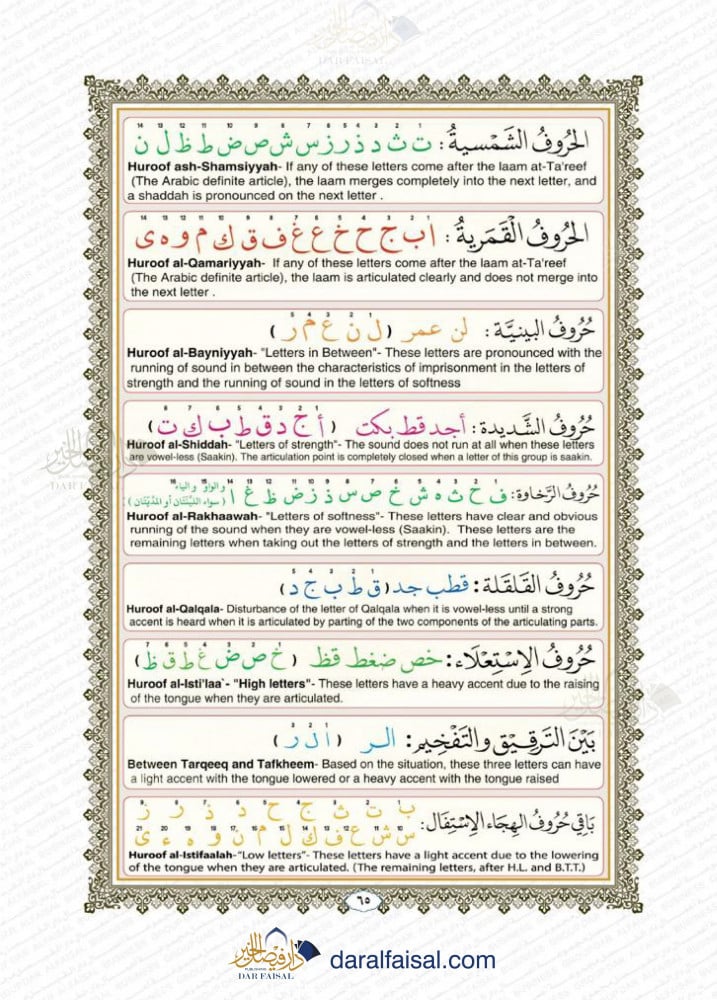 دار فيصل الخير
DAR FAISAL
الحُرُوفُ الشَّمْسِيةُ : ت ث د ذ ر ز س ش ص ض ط ظ ل ن
Huroof ash-Shamsiyyah- If any of these letters come after the laam at-Ta'reef
(The Arabic definite article), the laam merges completely into the next letter, and
a shaddah is pronounced on the next letter .
الحُرُوفُ الْقَمَرِيةُ : ا ب ج ح خ ع غ ف ق ك م و ه ى
Huroof al-Qamariyyah- If any of these letters come after the laam at-Ta'reef
(The Arabic definite article), the laam is articulated clearly and does not merge into
the next letter .
حُرُوفُ البينيَّة : لن عمر ( ل ن ع م ر )
Huroof al-Bayniyyah- "Letters in Between"- These letters are pronounced with the
running of sound in between the characteristics of imprisonment in the letters of
strength and the running of sound in the letters of softness
حُرُوفُ الشَّدِيدة : أجد قط بكت ( أ ج د ق ط ب ك ت )
Huroof al-Shiddah- "Letters of strength"- The sound does not run at all when these letters
are vowel-less (Saakin). The articulation point is completely closed when a letter of this group is saakin.
حُرُوفُ الرَّخاوَة: ف ح ث ه ش خ ص س ذ ز ض ظ غ ا والواو والياء ( سواء اللَّيِّنَتَان أو المَدِّيَتَان )
Huroof al-Rakhaawah- "Letters of softness"- These letters have clear and obvious
running of the sound when they are vowel-less (Saakin). These letters are the
remaining letters when taking out the letters of strength and the letters in between.
حُرُوفُ القَلقَلة : قطب جد ( ق ط ب ج د )
Huroof al-Qalqala- Disturbance of the letter of Qalqala when it is vowel-less until a strong
accent is heard when it is articulated by parting of the two components of the articulating parts.
حُرُوفُ الإستِعْلَاء : خص ضغط قظ ( خ ص ض غ ط ق ظ )
Huroof al-Isti'laa`- "High letters"- These letters have a heavy accent due to the raising
of the tongue when they are articulated.
بَيْنَ التَرقِيْقِ والتَفْخِيم : الر ( ا ل ر )
Between Tarqeeq and Tafkheem- Based on the situation, these three letters can have
a light accent with the tongue lowered or a heavy accent with the tongue raised
بَاقِي حُرُوفُ الهِجَاء الإستِفَال : ب ت ث ج ح د ذ ر ز
س ش ع ف ك ل م ن و ه ء ى
Huroof al-Istifaalah-"Low letters"- These letters have a light accent due to the lowering
of the tongue when they are articulated. (The remaining letters, after H.L. and B.T.T.)
٦٥
دار فيصل الخير
PUBLISHING
DAR FAISAL
daralfaisal.com